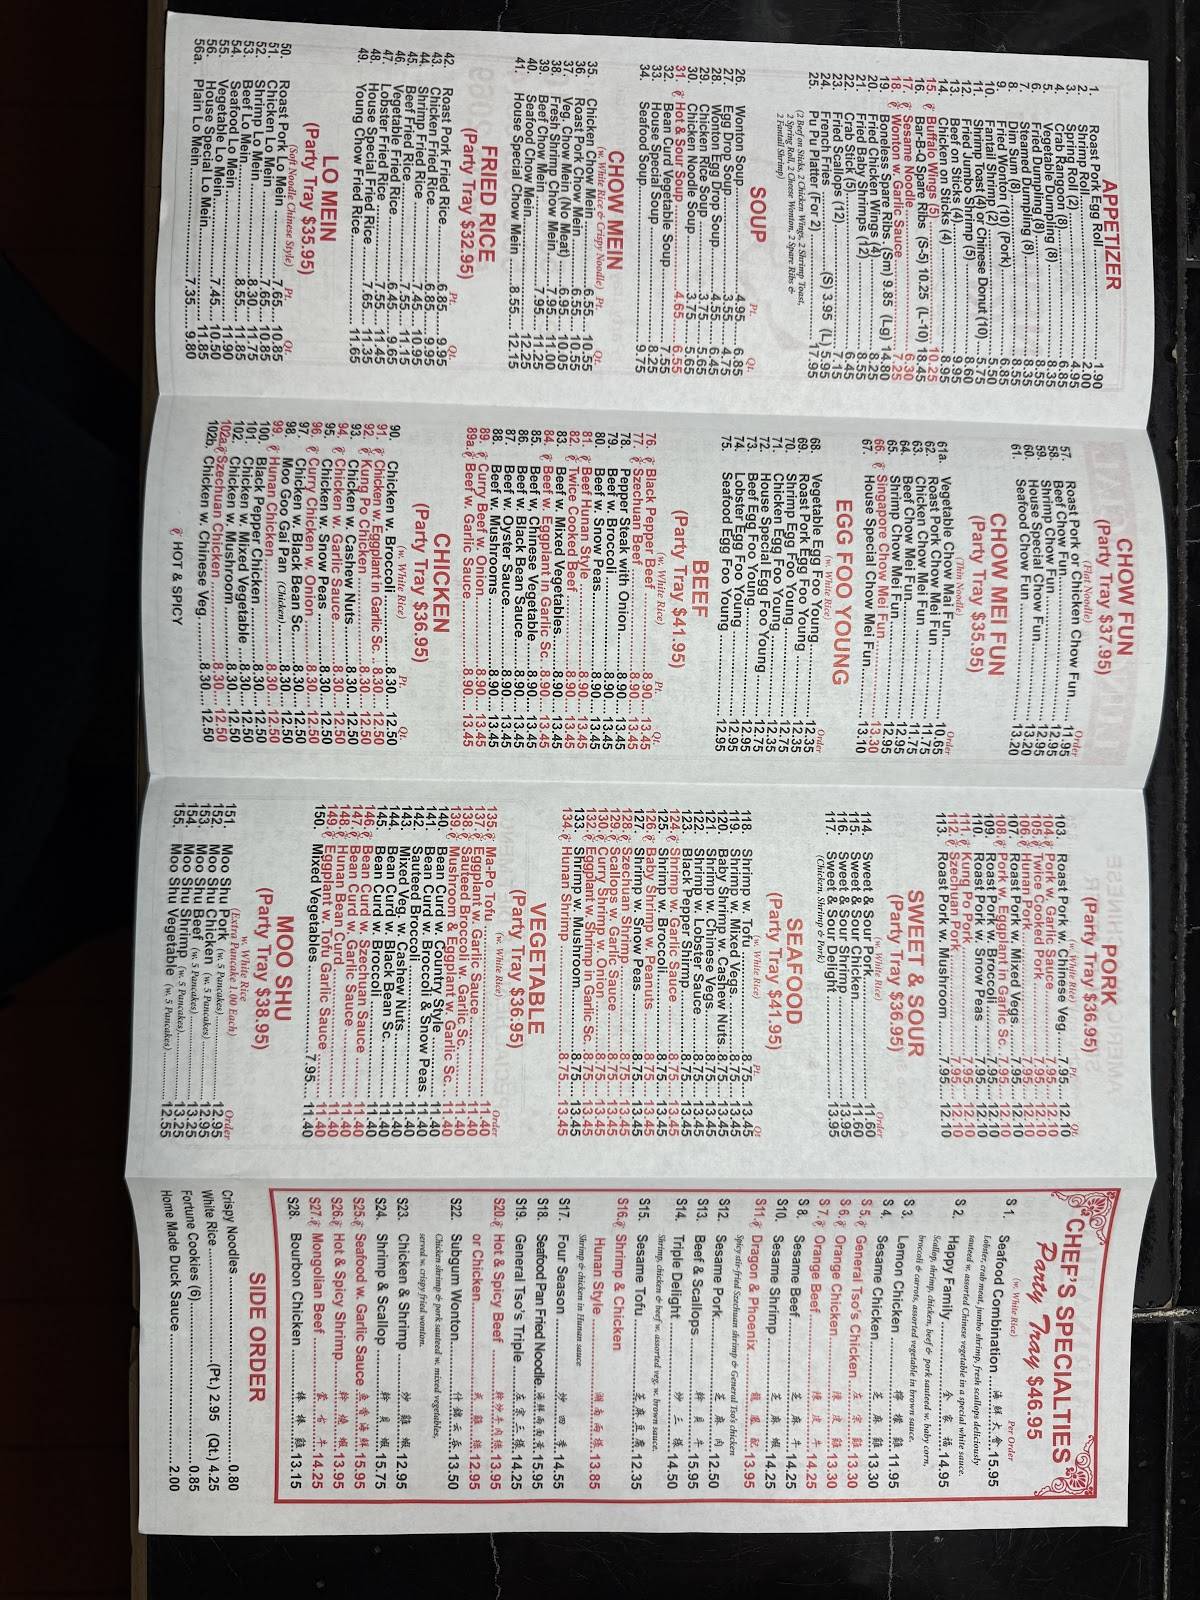 APPETIZER
1. Roast Pork Egg Roll 1.90
2. Shrimp Roll 2.00
3. Spring Roll (2) 4.95
4. Crab Rangoon (8) 6.85
5. Vegetable Dumpling (8) 8.35
6. Fried Dumpling (8) 8.55
7. Steamed Dumpling (8) 8.35
8. Dim Sum (8) 8.55
9. Fried Wonton (10) (Pork) 6.85
10. Fantail Shrimp (2) 5.50
11. Shrimp Toast (4) or Chinese Donut (10) 5.75
12. Fried Jumbo Shrimp (5) 8.60
13. Beef on Sticks (4) 9.95
14. Chicken on Sticks (4) 8.95
15. Buffalo Wings (5) 10.25
16. Bar-B-Q Spare Ribs (S-5) 10.25 (L-10) 18.45
17. Sesame Noodle 6.30
18. Wonton w. Garlic Sauce 7.25
19. Boneless Spare Ribs. (Sm) 9.85 (Lg) 14.80
20. Fried Chicken Wings (4) 8.25
21. Fried Baby Shrimps (12) 8.55
22. Crab Stick (5) 6.45
23. Fried Scallops (12) 7.15
24. French Fries (S) 3.95 (L) 5.95
25. Pu Pu Platter (For 2) 17.95
(2 Beef on Sticks, 2 Chicken Wings, 2 Shrimp Toast,
2 Spring Roll, 2 Cheese Wonton, 2 Spare Ribs &
2 Fantail Shrimp)
SOUP
Pt. Qt.
26. Wonton Soup 4.95 6.85
27. Egg Drop Soup 3.55 4.75
28. Wonton Egg Drop Soup 4.55 6.45
29. Chicken Rice Soup 3.75 5.65
30. Chicken Noodle Soup 3.75 5.65
31. Hot & Sour Soup 4.65 6.55
32. Bean Curd Vegetable Soup 7.55
33. House Special Soup 8.25
34. Seafood Soup 9.75
CHOW MEIN
(w. White Rice & Crispy Noodle) Pt. Qt.
35. Chicken Chow Mein 6.55 10.55
36. Roast Pork Chow Mein 6.55 10.55
37. Veg. Chow Mein (No Meat) 6.95 10.05
38. Fresh Shrimp Chow Mein 7.95 11.00
39. Beef Chow Mein 7.95 11.25
40. Seafood Chow Mein 12.25
41. House Special Chow Mein 8.55 12.15
FRIED RICE
(Party Tray $32.95)
Pt. Qt.
42. Roast Pork Fried Rice 6.85 9.95
43. Chicken Fried Rice 6.85 9.95
44. Shrimp Fried Rice 7.45 10.95
45. Beef Fried Rice 7.55 11.15
46. Vegetable Fried Rice 6.45 9.65
47. Lobster Fried Rice 7.55 11.35
48. House Special Fried Rice 7.65 11.35
49. Young Chow Fried Rice 11.65
LO MEIN
(Party Tray $35.95)
(Soft Noodle Chinese Style) Pt. Qt.
50. Roast Pork Lo Mein 7.65 10.85
51. Chicken Lo Mein 7.65 10.85
52. Shrimp Lo Mein 8.30 11.75
53. Beef Lo Mein 8.55
54. Seafood Lo Mein 11.90
55. Vegetable Lo Mein 7.45 10.50
56. House Special Lo Mein 11.85
56a. Plain Lo Mein 7.35 9.80
CHOW FUN
(Party Tray $37.95)
(Flat Noodle) Order
57. Roast Pork or Chicken Chow Fun 11.95
58. Beef Chow Fun 12.95
59. Shrimp Chow Fun 12.95
60. House Special Chow Fun 13.20
61. Seafood Chow Fun 13.20
CHOW MEI FUN
(Party Tray $35.95)
(Thin Noodle) Order
61a. Vegetable Chow Mai Fun 10.65
62. Roast Pork Chow Mei Fun 11.75
63. Chicken Chow Mei Fun 11.75
64. Beef Chow Mei Fun 12.95
65. Shrimp Chow Mei Fun 12.95
66. Singapore Chow Mei Fun 13.30
67. House Special Chow Mei Fun 13.10
EGG FOO YOUNG
(w. White Rice) Order
68. Vegetable Egg Foo Young 12.35
69. Roast Pork Egg Foo Young 12.35
70. Shrimp Egg Foo Young 12.75
71. Chicken Egg Foo Young 12.35
72. House Special Egg Foo Young 12.75
73. Beef Egg Foo Young 12.95
74. Lobster Egg Foo Young 12.95
75. Seafood Egg Foo Young 12.95
BEEF
(Party Tray $41.95)
(w. White Rice) Pt. Qt.
76. Black Pepper Beef 8.90 13.45
77. Szechuan Beef 8.90 13.45
78. Pepper Steak with Onion 8.90 13.45
79. Beef w. Broccoli 8.90 13.45
80. Beef w. Snow Peas 8.90 13.45
81. Beef Hunan Style 8.90 13.45
82. Twice Cooked Beef 8.90 13.45
83. Beef w. Mixed Vegetables 8.90 13.45
84. Beef w. Eggplant in Garlic Sc. 8.90 13.45
85. Beef w. Chinese Vegetable 8.90 13.45
86. Beef w. Black Bean Sauce 8.90 13.45
87. Beef w. Oyster Sauce 8.90 13.45
88. Beef w. Mushrooms 8.90 13.45
89. Curry Beef w. Onion 8.90 13.45
89a. Beef w. Garlic Sauce 8.90 13.45
CHICKEN
(Party Tray $36.95)
(w. White Rice) Pt. Qt.
90. Chicken w. Broccoli 8.30 12.50
91. Chicken w. Eggplant in Garlic Sc. 8.30 12.50
92. Kung Po Chicken 8.30 12.50
93. Chicken w. Cashew Nuts 8.30 12.50
94. Chicken w. Garlic Sauce 8.30 12.50
95. Chicken w. Snow Peas 8.30 12.50
96. Curry Chicken w. Onion 8.30 12.50
97. Chicken w. Black Bean Sc. 8.30 12.50
98. Moo Goo Gai Pan (Chicken) 8.30 12.50
99. Hunan Chicken 8.30 12.50
100. Black Pepper Chicken 8.30 12.50
101. Chicken w. Mixed Vegetable 8.30 12.50
102. Chicken w. Mushroom 8.30 12.50
102a. Szechuan Chicken 8.30 12.50
102b. Chicken w. Chinese Veg. 8.30 12.50
HOT & SPICY
PORK
(Party Tray $36.95)
(w. White Rice) Pt. Qt.
103. Roast Pork w. Chinese Veg. 7.95 12.10
104. Pork w. Garlic Sauce 7.95 12.10
105. Twice Cooked Pork 7.95 12.10
106. Hunan Pork 7.95 12.10
107. Roast Pork w. Mixed Vegs 7.95 12.10
108. Pork w. Eggplant in Garlic Sc. 7.95 12.10
109. Roast Pork w. Broccoli 7.95 12.10
110. Roast Pork w. Snow Peas 7.95 12.10
111. Kung Po Pork 7.95 12.10
112. Szechuan Pork 7.95 12.10
113. Roast Pork w. Mushroom 7.95 12.10
SWEET & SOUR
(Party Tray $36.95)
(w. White Rice) Order
114. Sweet & Sour Pork 11.60
115. Sweet & Sour Chicken 11.60
116. Sweet & Sour Shrimp 13.95
117. Sweet & Sour Delight 13.95
(Chicken, Shrimp & Pork)
SEAFOOD
(Party Tray $41.95)
(w. White Rice) Pt. Qt.
118. Shrimp w. Tofu 8.75 13.45
119. Shrimp w. Mixed Vegs. 8.75 13.45
120. Baby Shrimp w. Cashew Nuts 8.75 13.45
121. Shrimp w. Chinese Vegs. 8.75 13.45
122. Shrimp w. Lobster Sauce 8.75 13.45
123. Black Pepper Shrimp 8.75 13.45
124. Shrimp w. Garlic Sauce 8.75 13.45
125. Shrimp w. Broccoli 8.75 13.45
126. Baby Shrimp w. Peanuts 8.75 13.45
127. Shrimp w. Snow Peas 8.75 13.45
128. Szechuan Shrimp 8.75 13.45
129. Scallops w. Garlic Sauce 8.75 13.45
130. Curry Shrimp w. Onion 8.75 13.45
132. Eggplant w. Shrimp Garlic Sc. 8.75 13.45
133. Shrimp w. Mushroom 8.75 13.45
134. Hunan Shrimp 8.75 13.45
VEGETABLE
(Party Tray $36.95)
(w. White Rice) Order
135. Ma-Po Tofu 11.40
137. Eggplant w. Garlic Sauce 11.40
138. Sauteed Broccoli w. Garlic Sc. 11.40
139. Mushroom & Eggplant w. Garlic Sc. 11.40
140. Bean Curd w. Country Style 11.40
141. Bean Curd w. Broccoli & Snow Peas 11.40
142. Sauteed Broccoli 11.40
143. Mixed Veg. w. Cashew Nuts 11.40
144. Bean Curd w. Black Bean Sc. 11.40
145. Bean Curd w. Broccoli 11.40
146. Bean Curd w. Szechuan Sauce 11.40
147. Bean Curd w. Garlic Sauce 11.40
148. Hunan Bean Curd 11.40
149. Eggplant w. Tofu Garlic Sauce 11.40
150. Mixed Vegetables 7.95 11.40
MOO SHU
(Party Tray $38.95)
w. White Rice
(Extra Pancake 1.00 Each) Order
151. Moo Shu Pork (w. 5 Pancakes) 12.95
152. Moo Shu Chicken (w. 5 Pancakes) 12.95
153. Moo Shu Beef (w. 5 Pancakes) 13.25
154. Moo Shu Shrimp (w. 5 Pancakes) 13.25
155. Moo Shu Vegetable (w. 5 Pancakes) 12.55
CHEF'S SPECIALTIES
Party Tray $46.95
(w. White Rice) Per Order
S 1. Seafood Combination 海鮮大會 15.95
Lobster, crab meat, jumbo shrimp, fresh scallops deliciously
sauteed w. assorted Chinese vegetable in a special white sauce.
S 2. Happy Family 全家福 14.95
Scallop, shrimp, chicken, beef & pork sauteed w. baby corn,
broccoli & carrots, assorted vegetable in brown sauce.
S 3. Lemon Chicken 檸檬雞 11.95
S 4. Sesame Chicken 芝麻雞 13.30
S 5. General Tso's Chicken 左宗雞 13.30
S 6. Orange Chicken 陳皮雞 13.30
S 7. Orange Beef 陳皮牛 14.25
S 8. Sesame Beef 芝麻牛 14.25
S10. Sesame Shrimp 芝麻蝦 14.25
S11. Dragon & Phoenix 龍鳳配 13.95
Spicy stir-fried Szechuan shrimp & General Tso's chicken
S12. Sesame Pork 芝麻肉 12.50
S13. Beef & Scallops 干貝牛 15.95
S14. Triple Delight 炒三樣 14.50
Shrimp, chicken & beef w. assorted veg. w. brown sauce.
S15. Sesame Tofu 芝麻豆腐 12.35
S16. Shrimp & Chicken
Hunan Style 湖南兩樣 13.85
Shrimp & chicken in Hunan sauce
S17. Four Season 炒四季 14.55
S18. Seafood Pan Fried Noodle 海鮮兩面黃 15.95
S19. General Tso's Triple 左宗三樣 14.25
S20. Hot & Spicy Beef 干炒牛肉絲 13.95
or Chicken 或雞絲 12.95
S22. Subgum Wonton 什錦云吞 13.50
Chicken shrimp & pork sauteed w. mixed vegetables,
served w. crispy fried wonton.
S23. Chicken & Shrimp 炒雞蝦 12.95
S24. Shrimp & Scallop 干貝蝦 15.75
S25. Seafood w. Garlic Sauce 魚香海鮮 15.95
S26. Hot & Spicy Shrimp 干燒蝦 13.95
S27. Mongolian Beef 蒙古牛 14.25
S28. Bourbon Chicken 棒棒雞 13.15
SIDE ORDER
Crispy Noodles 0.80
White Rice (Pt.) 2.95 (Qt.) 4.25
Fortune Cookies (6) 0.85
Home Made Duck Sauce 2.00